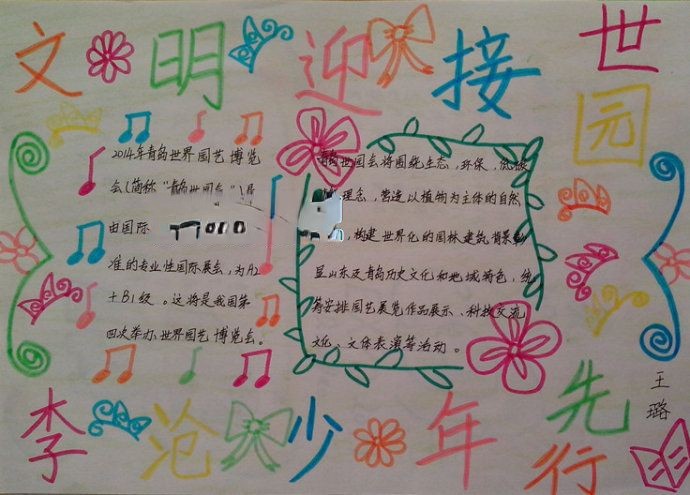 文明迎接世园
2014年青岛世界园艺博览
会(简称"青岛世园会")是
由国际
准的专业性国际展会,为A2
+B1级。这将是我国第
四次举办世界园艺博览会。
青岛世园会将围绕生态,环保,低碳
理念,营造以植物为主体的自然
,构建世界化的园林建筑背景,
显山东及青岛历史文化和地域特色,统
筹安排园艺展览作品展示、科技交流
文化、文体表演等活动。
王璐
李沧少年先行